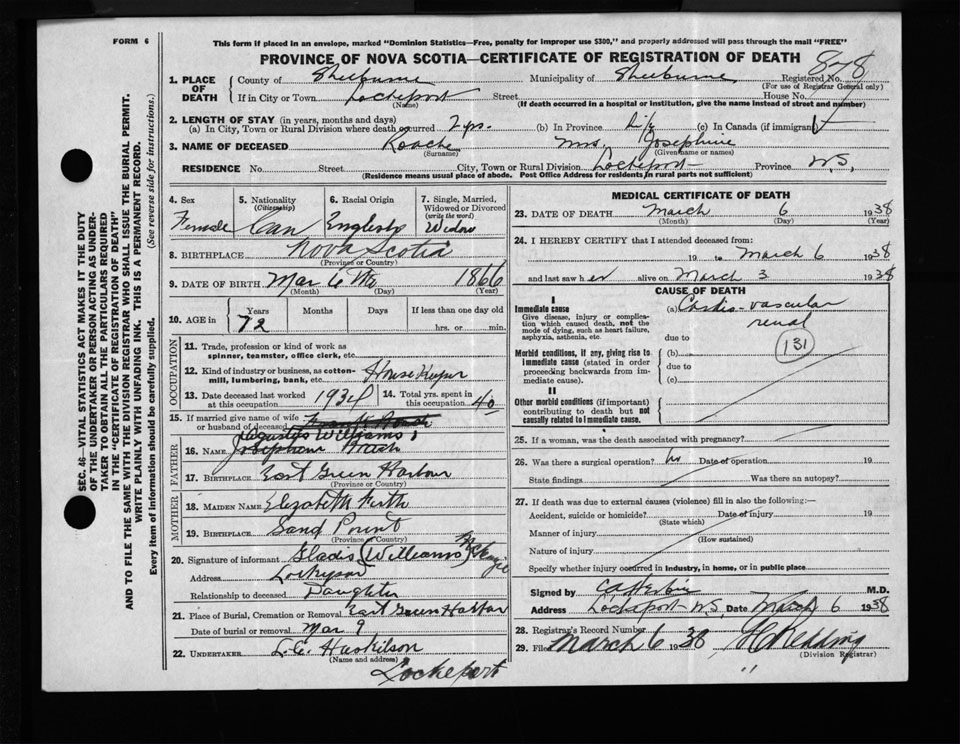 FORM 6
This form if placed in an envelope, marked "Dominion Statistics—Free, penalty for improper use $300," and properly addressed will pass through the mail "FREE"
PROVINCE OF NOVA SCOTIA—CERTIFICATE OF REGISTRATION OF DEATH
SEC. 46—VITAL STATISTICS ACT MAKES IT THE DUTY
OF THE UNDERTAKER OR PERSON ACTING AS UNDER-
TAKER TO OBTAIN ALL THE PARTICULARS REQUIRED
IN THE "CERTIFICATE OF REGISTRATION OF DEATH"
AND TO FILE THE SAME WITH THE DIVISION REGISTRAR WHO SHALL ISSUE THE BURIAL PERMIT.
WRITE PLAINLY WITH UNFADING INK. THIS IS A PERMANENT RECORD.
Every item of information should be carefully supplied. (See reverse side for instructions.)
1. PLACE OF DEATH County of Shelburne Municipality of Shelburne Registered No. 878
(For use of Registrar General only)
If in City or Town Lockeport Street House No.
(Name) (If death occurred in a hospital or institution, give the name instead of street and number)
2. LENGTH OF STAY (in years, months and days)
(a) In City, Town or Rural Division where death occurred 2 yrs. (b) In Province Life (c) In Canada (if immigrant)
3. NAME OF DECEASED Roache Mrs. Josephine
(Surname) (Given name or names)
RESIDENCE No. Street City, Town or Rural Division Lockeport Province N.S.
(Residence means usual place of abode. Post Office Address for residents in rural parts not sufficient)
4. Sex Female
5. Nationality (Citizenship) Can
6. Racial Origin English
7. Single, Married, Widowed or Divorced (write the word) Widow
8. BIRTHPLACE Nova Scotia
(Province or Country)
9. DATE OF BIRTH Mar 6 1866
(Month) (Day) (Year)
10. AGE in Years Months Days If less than one day old
72 hrs. or min.
OCCUPATION
11. Trade, profession or kind of work as
spinner, teamster, office clerk, etc.
12. Kind of industry or business, as cotton-
mill, lumbering, bank, etc. House Keeper
13. Date deceased last worked at this occupation 1934
14. Total yrs. spent in this occupation 40
15. If married give name of wife
or husband of deceased Frank Roach
Augustus Williams
FATHER
16. NAME
17. BIRTHPLACE East Green Harbour
(Province or Country)
MOTHER
18. MAIDEN NAME Elizabeth Firth
19. BIRTHPLACE Sand Point
(Province or Country)
20. Signature of informant Gladis (Williams) McKenzie
Address Lockeport
Relationship to deceased Daughter
21. Place of Burial, Cremation or Removal East Green Harbor
Date of burial or removal Mar 9
22. UNDERTAKER L.C. Huskilson
(Name and address)
Lockeport
MEDICAL CERTIFICATE OF DEATH
23. DATE OF DEATH March 6 1938
(Month) (Day) (Year)
24. I HEREBY CERTIFY that I attended deceased from:
19 to March 6 1938
and last saw her alive on March 3 1938
CAUSE OF DEATH
I
Immediate cause (a) Cardio-vascular
Give disease, injury or compli- renal
cation which caused death, not the
mode of dying, such as heart failure,
asphyxia, asthenia, etc. due to
131
Morbid conditions, if any, giving rise to (b)
immediate cause (stated in order due to
proceeding backwards from im-
mediate cause). (c)
II
Other morbid conditions (if important)
contributing to death but not
causally related to immediate cause.
25. If a woman, was the death associated with pregnancy?
26. Was there a surgical operation? No Date of operation 19
State findings Was there an autopsy?
27. If death was due to external causes (violence) fill in also the following:—
Accident, suicide or homicide? Date of injury 19
(State which)
Manner of injury
(How sustained)
Nature of injury
Specify whether injury occurred in industry, in home, or in public place
Signed by M.D.
Address Lockeport N.S. Date March 6 1938
28. Registrar's Record Number
29. Filed March 6 1938 Redding
(Division Registrar)